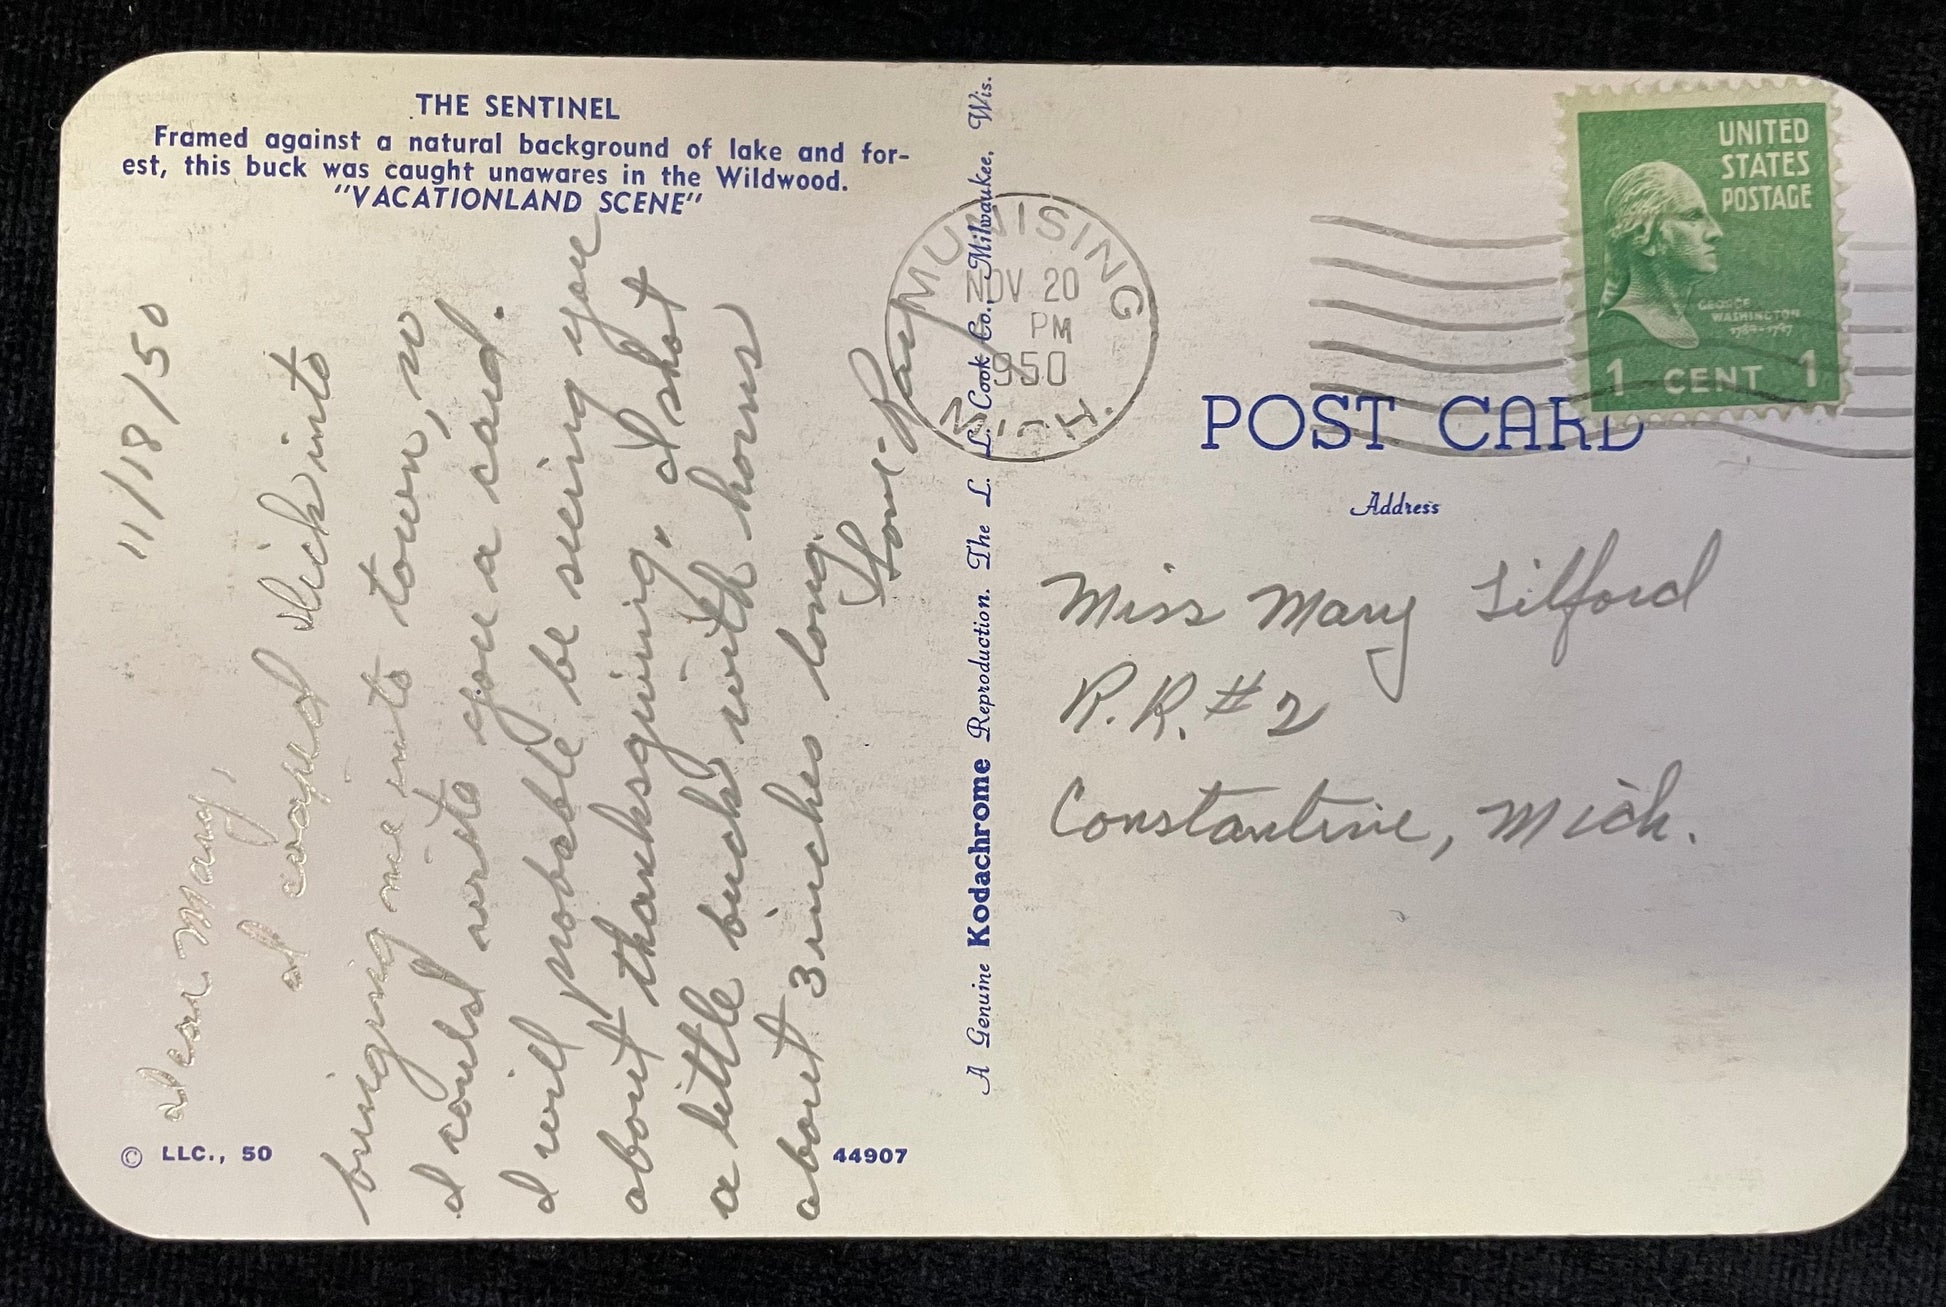 THE SENTINEL
Framed against a natural background of lake and for-
est, this buck was caught unawares in the Wildwood.
"VACATIONLAND SCENE"
11/18/50
Dear Mary,
I coaxed Dick into
bringing me into town, so
I could write you a card.
I will probable be seeing you
about thanksgiving. I shot
a little buck with horns
about 3 inches long.
Love-Ray
© LLC., 50
44907
A Genuine Kodachrome Reproduction. The L. L. Cook Co., Milwaukee, Wis.
MUNISING
NOV 20
PM
1950
MICH.
UNITED
STATES
POSTAGE
GEORGE
WASHINGTON
1789-1797
1 CENT 1
POST CARD
Address
Miss Mary Tilford
R.R. #2
Constantine, Mich.